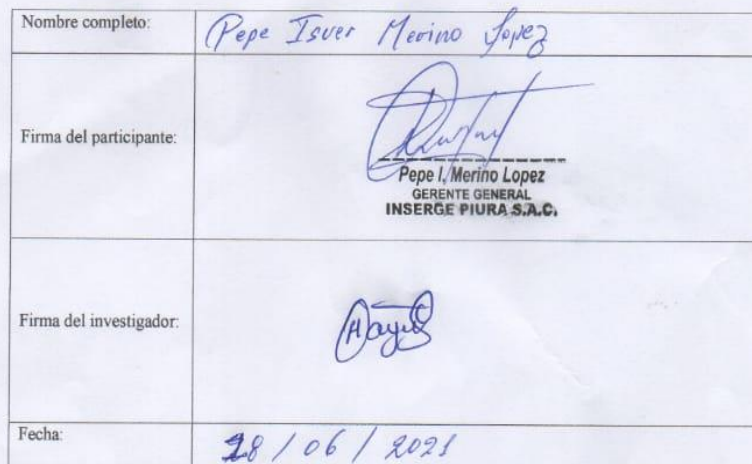 Nombre completo: Pepe Isver Merino Lopez
Firma del participante:
Pepe I. Merino Lopez
GERENTE GENERAL
INSERGE PIURA S.A.C.
Firma del investigador:
Fecha: 28 / 06 / 2021